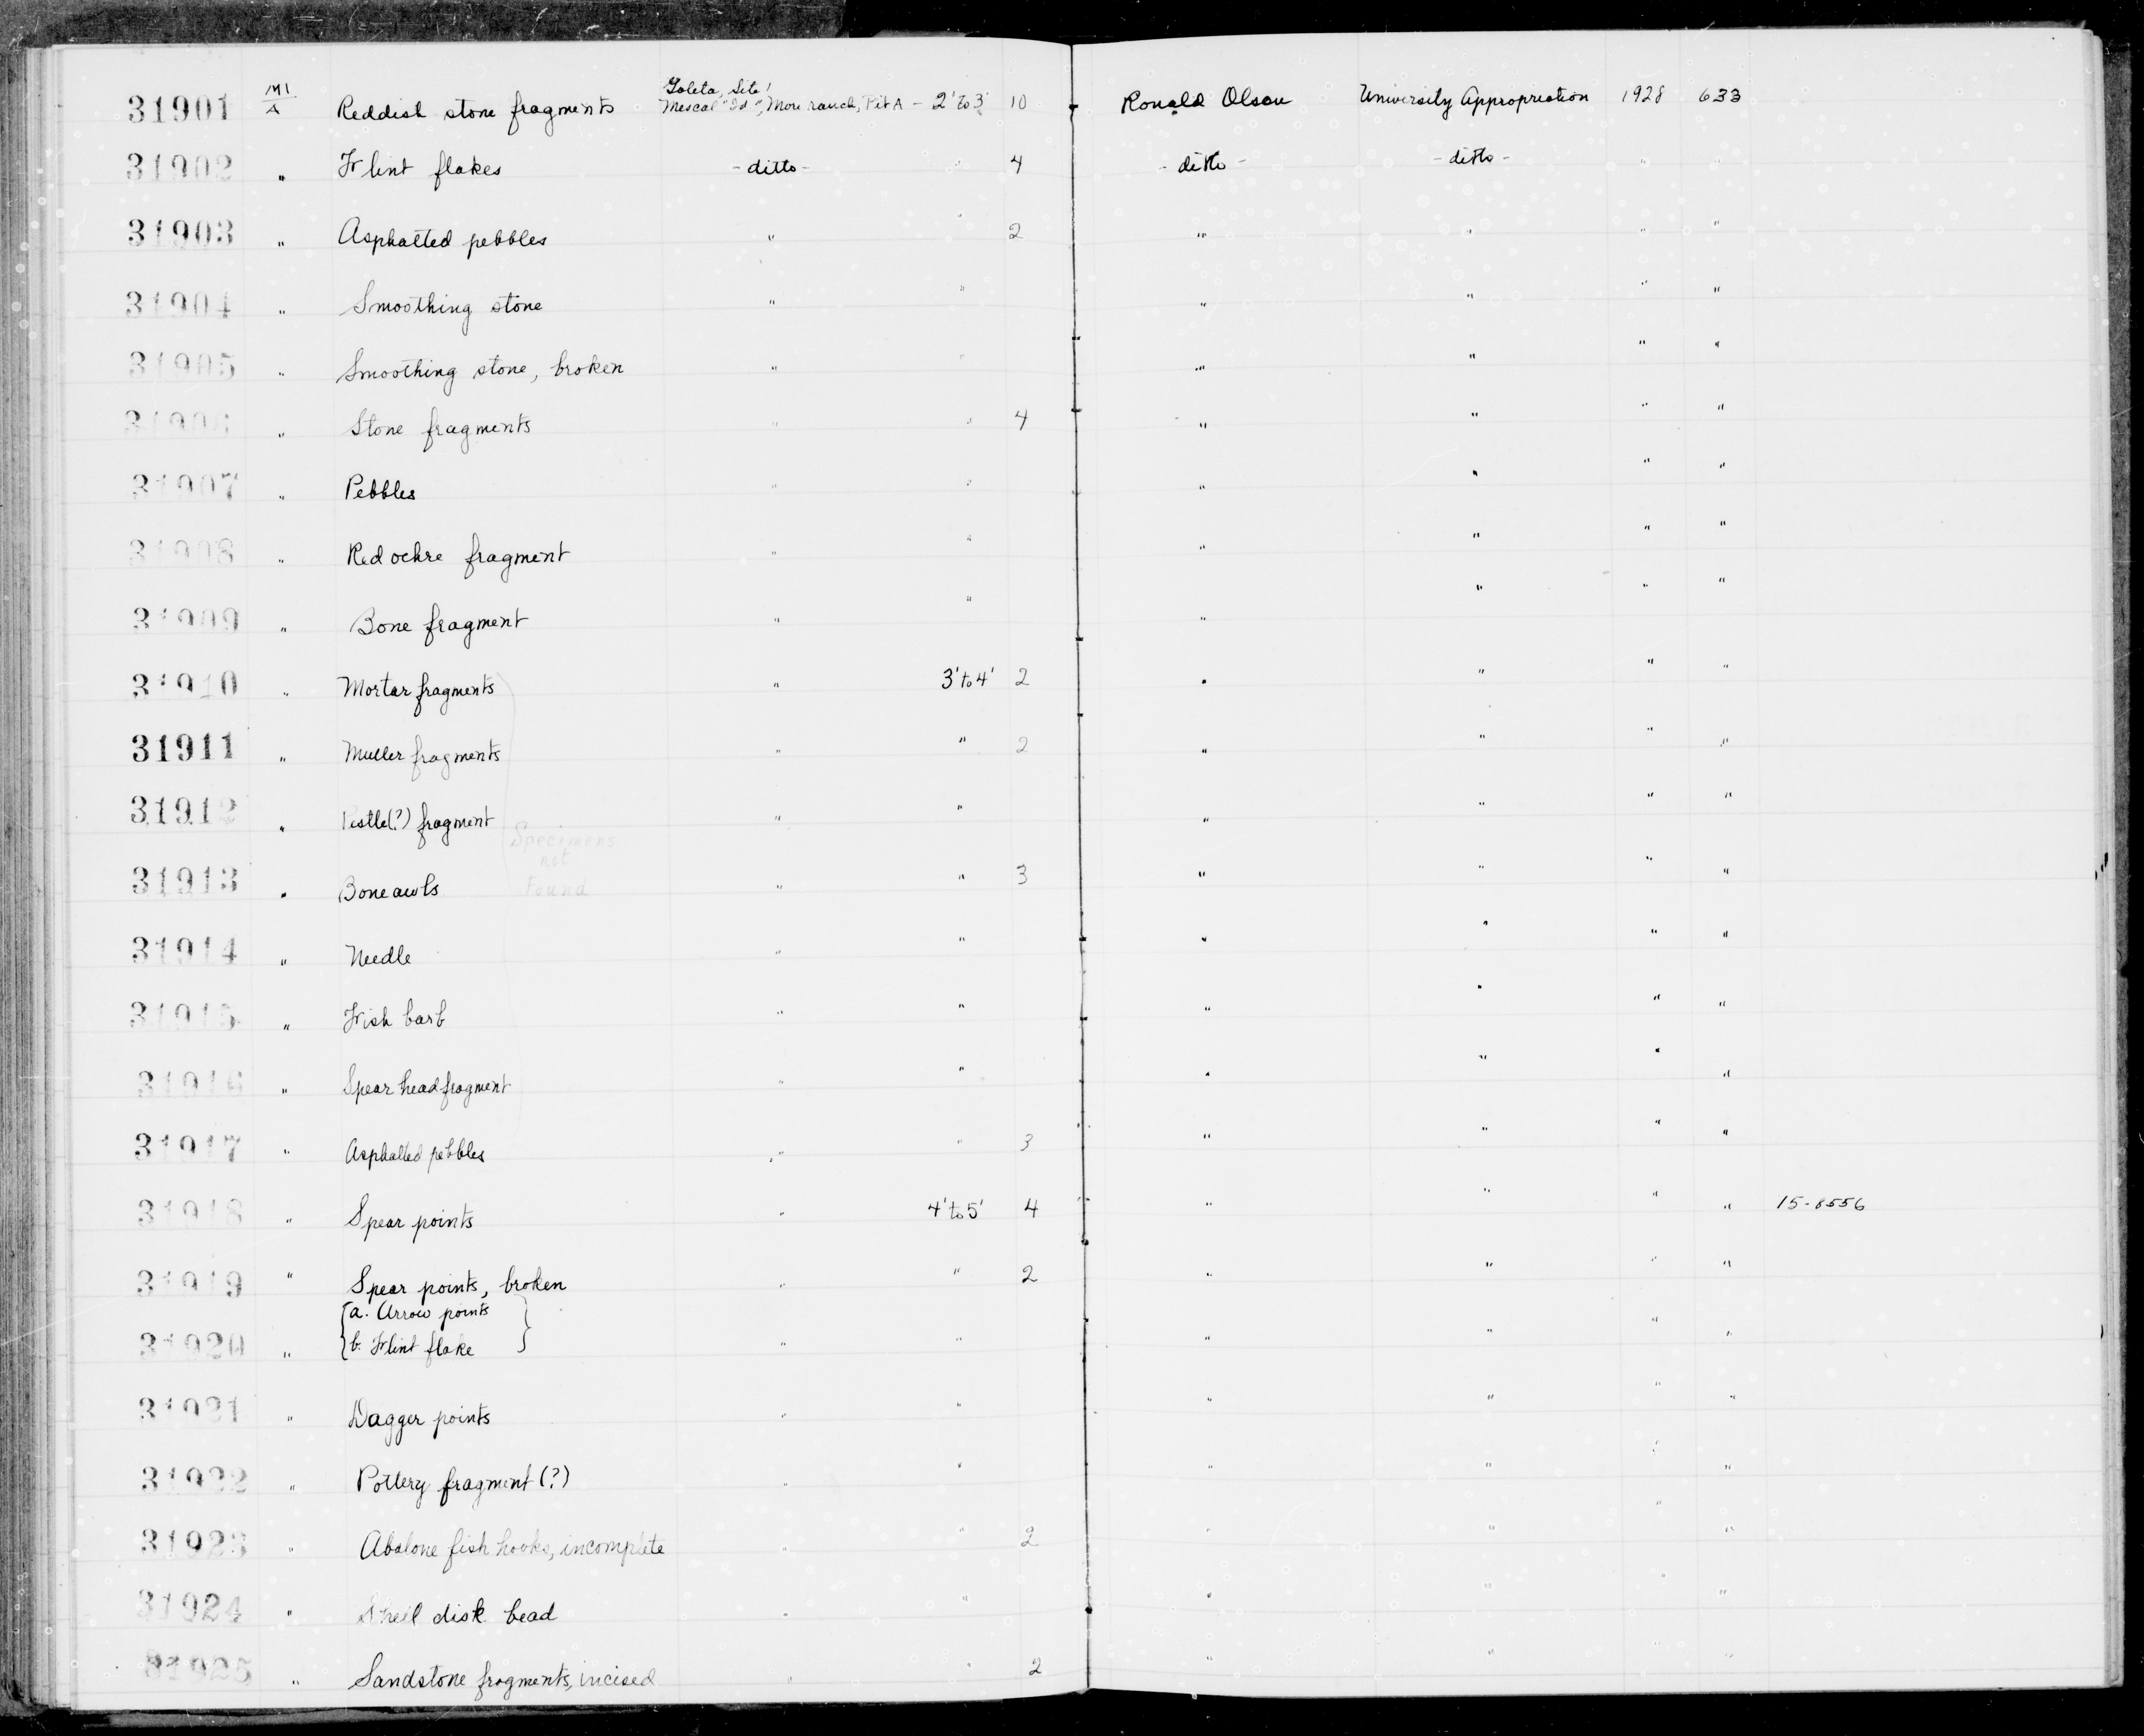 31901 141/A Reddish stone fragments Goleta, Site! Mescal "Id", More ranch, Pit A - 2' to 3' 10 Ronald Olson University Appropriation 1928 633
31902 " Flint flakes - ditto - " 4 - ditto - - ditto - " "
31903 " Asphalted pebbles " " 2 " " " "
31904 " Smoothing stone " " " " " "
31905 " Smoothing stone, broken " " " " " "
31906 " Stone fragments " " 4 " " " "
31907 " Pebbles " " " " " "
31908 " Red ochre fragment " " " " " "
31909 " Bone fragment " " " " " "
31910 " Mortar fragments " 3' to 4' 2 " " " "
31911 " Muller fragments " " 2 " " " "
31912 " Pestle(?) fragment " " " " " "
Specimens
not
Found
31913 " Bone awls " " 3 " " " "
31914 " Needle " " " " " "
31915 " Fish barb " " " " " "
31916 " Spear head fragment " " " " " "
31917 " Asphalted pebbles " " 3 " " " "
31918 " Spear points " 4' to 5' 4 " " " " 15-8556
31919 " Spear points, broken " " 2 " " " "
{a. Arrow points }
31920 " {b. Flint flake } " " " " " "
31921 " Dagger points " " " " " "
31922 " Pottery fragment (?) " " " " " "
31923 " Abalone fish hooks, incomplete " " 2 " " " "
31924 " Shell disk bead " " " " " "
31925 " Sandstone fragments, incised " " 2 " " "